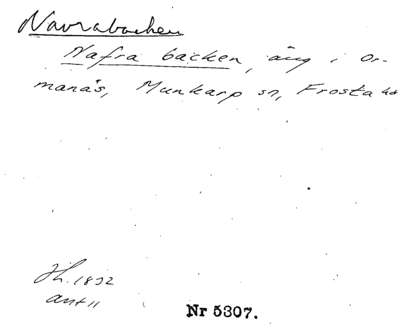 Navrabacken
Nafra backen, äng i Or-
manäs, Munkarp sn, Frosta hd
1832
ant 11
Nr 5307.